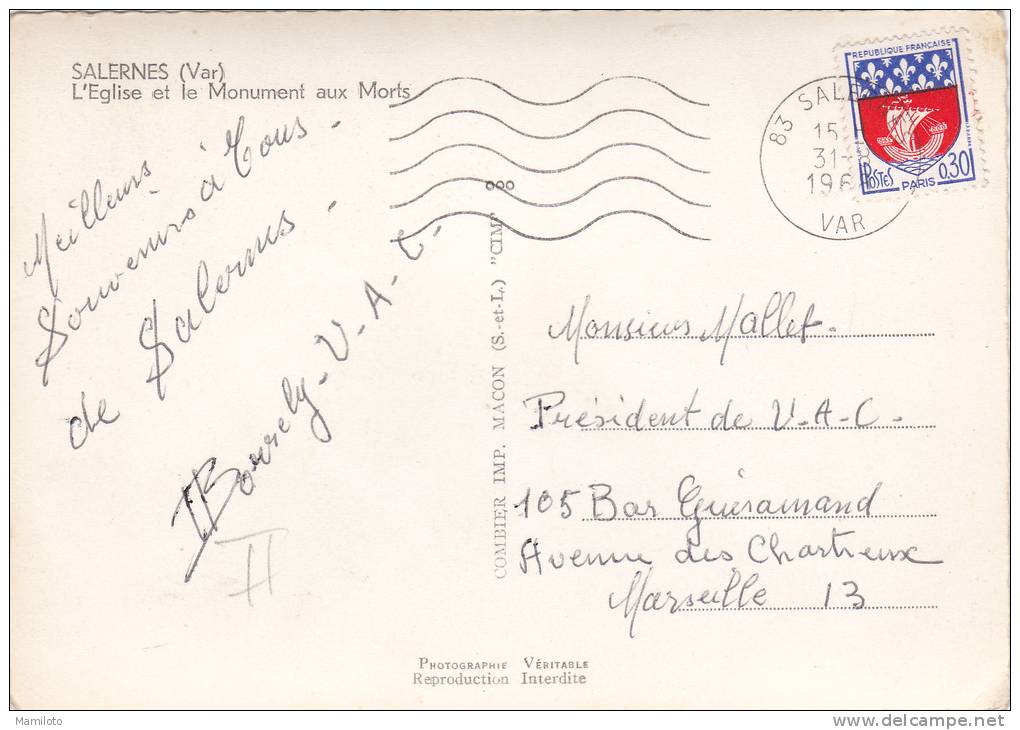 SALERNES (Var)
L'Eglise et le Monument aux Morts
Meilleurs
Souvenirs à Tous -
de Salernes -
Borrely - V - A - C -
II
COMBIER IMP. MACON (S.-et-L.) "CIM"
REPUBLIQUE FRANÇAISE
POSTES
PARIS
0,30
83
15
31-
196
VAR
Monsieur Mallet.
Président de V-A-C-
105 Bar
Avenue des Chartreux
Marseille 13
PHOTOGRAPHIE VÉRITABLE
Reproduction Interdite
Mamiloto
www.delcampe.net